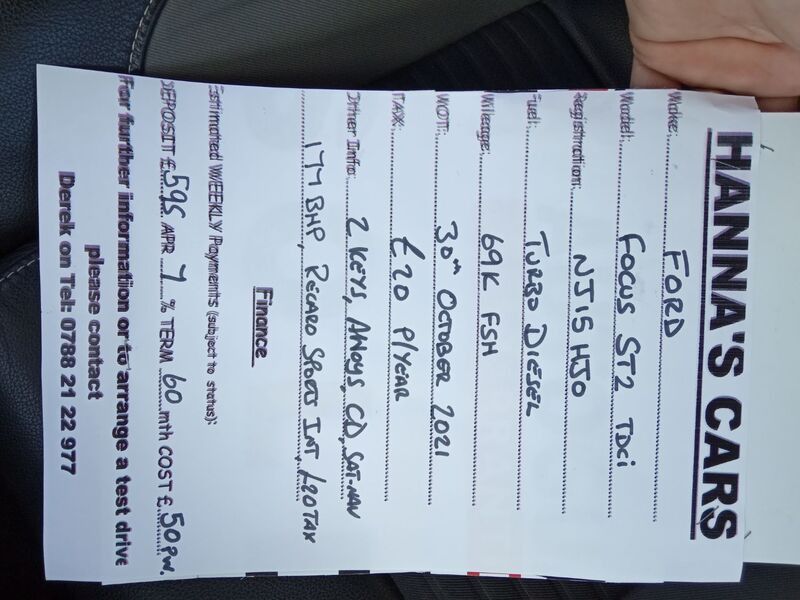 HANNA'S CARS
Make: FORD
Model: FOCUS ST2 TDCi
Registration: NJ15 HJO
Fuel: TURBO DIESEL
Mileage: 69K FSH
MOT: 30th OCTOBER 2021
TAX: £20 P/YEAR
Other Info: 2 KEYS, ALLOYS, CD, SAT-NAV
177 BHP, RECARO SPORTS INT, £20 TAX
Finance
Estimated WEEKLY Payments (subject to status):
DEPOSIT £ 595 APR 7 % TERM 60 mth COST £ 50 PW.
For further information or to arrange a test drive
please contact
Derek on Tel: 0788 21 22 977